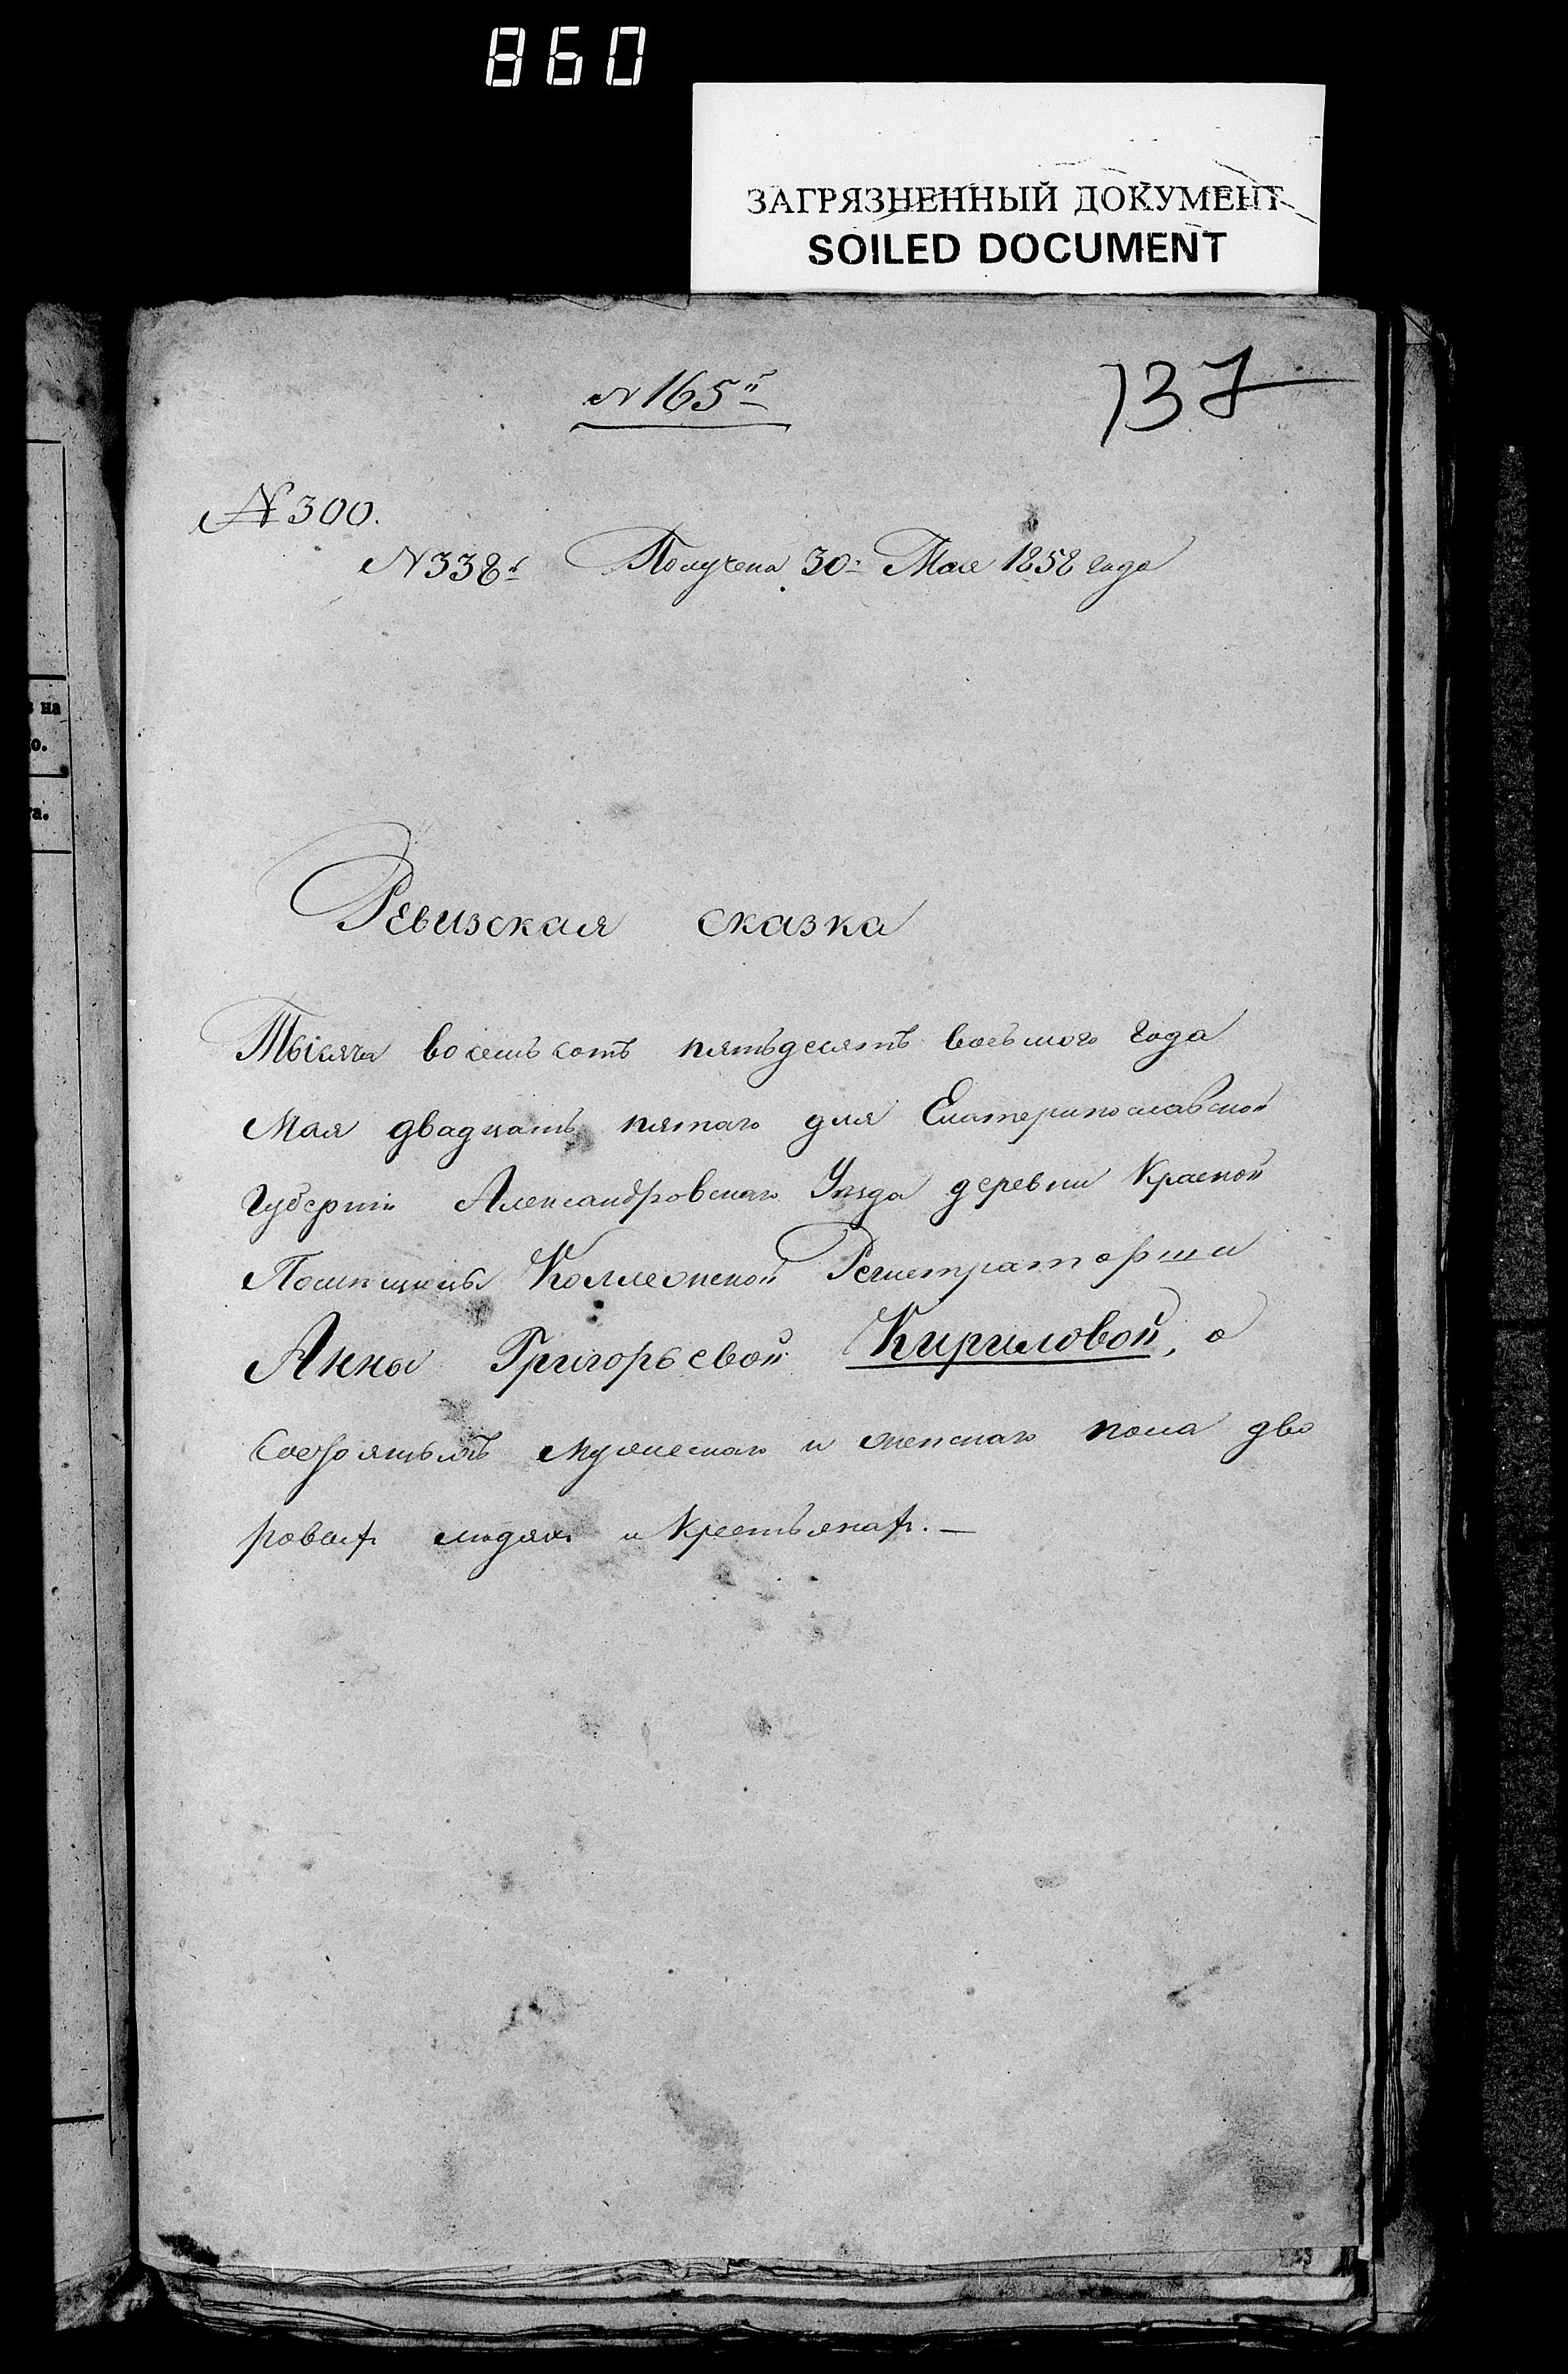 860
ЗАГРЯЗНЕННЫЙ ДОКУМЕНТ
SOILED DOCUMENT
№ 165й
737
№ 300.
№ 338й Получена 30го Мая 1858 года
на
о.
а.
Ревизская сказка
Тысяча восемьсотъ пятьдесятъ восьмого года
Мая двадцать пятаго дня Екатеринославской
Губерніи Александровскаго Уѣзда деревни Красной
Помѣщицы Коллежской Регистраторши
Анны Григорьевой Кириловой, о
Состоящихъ мужескаго и женскаго пола дво
ровыхъ людяхъ и Крестьянахъ. —